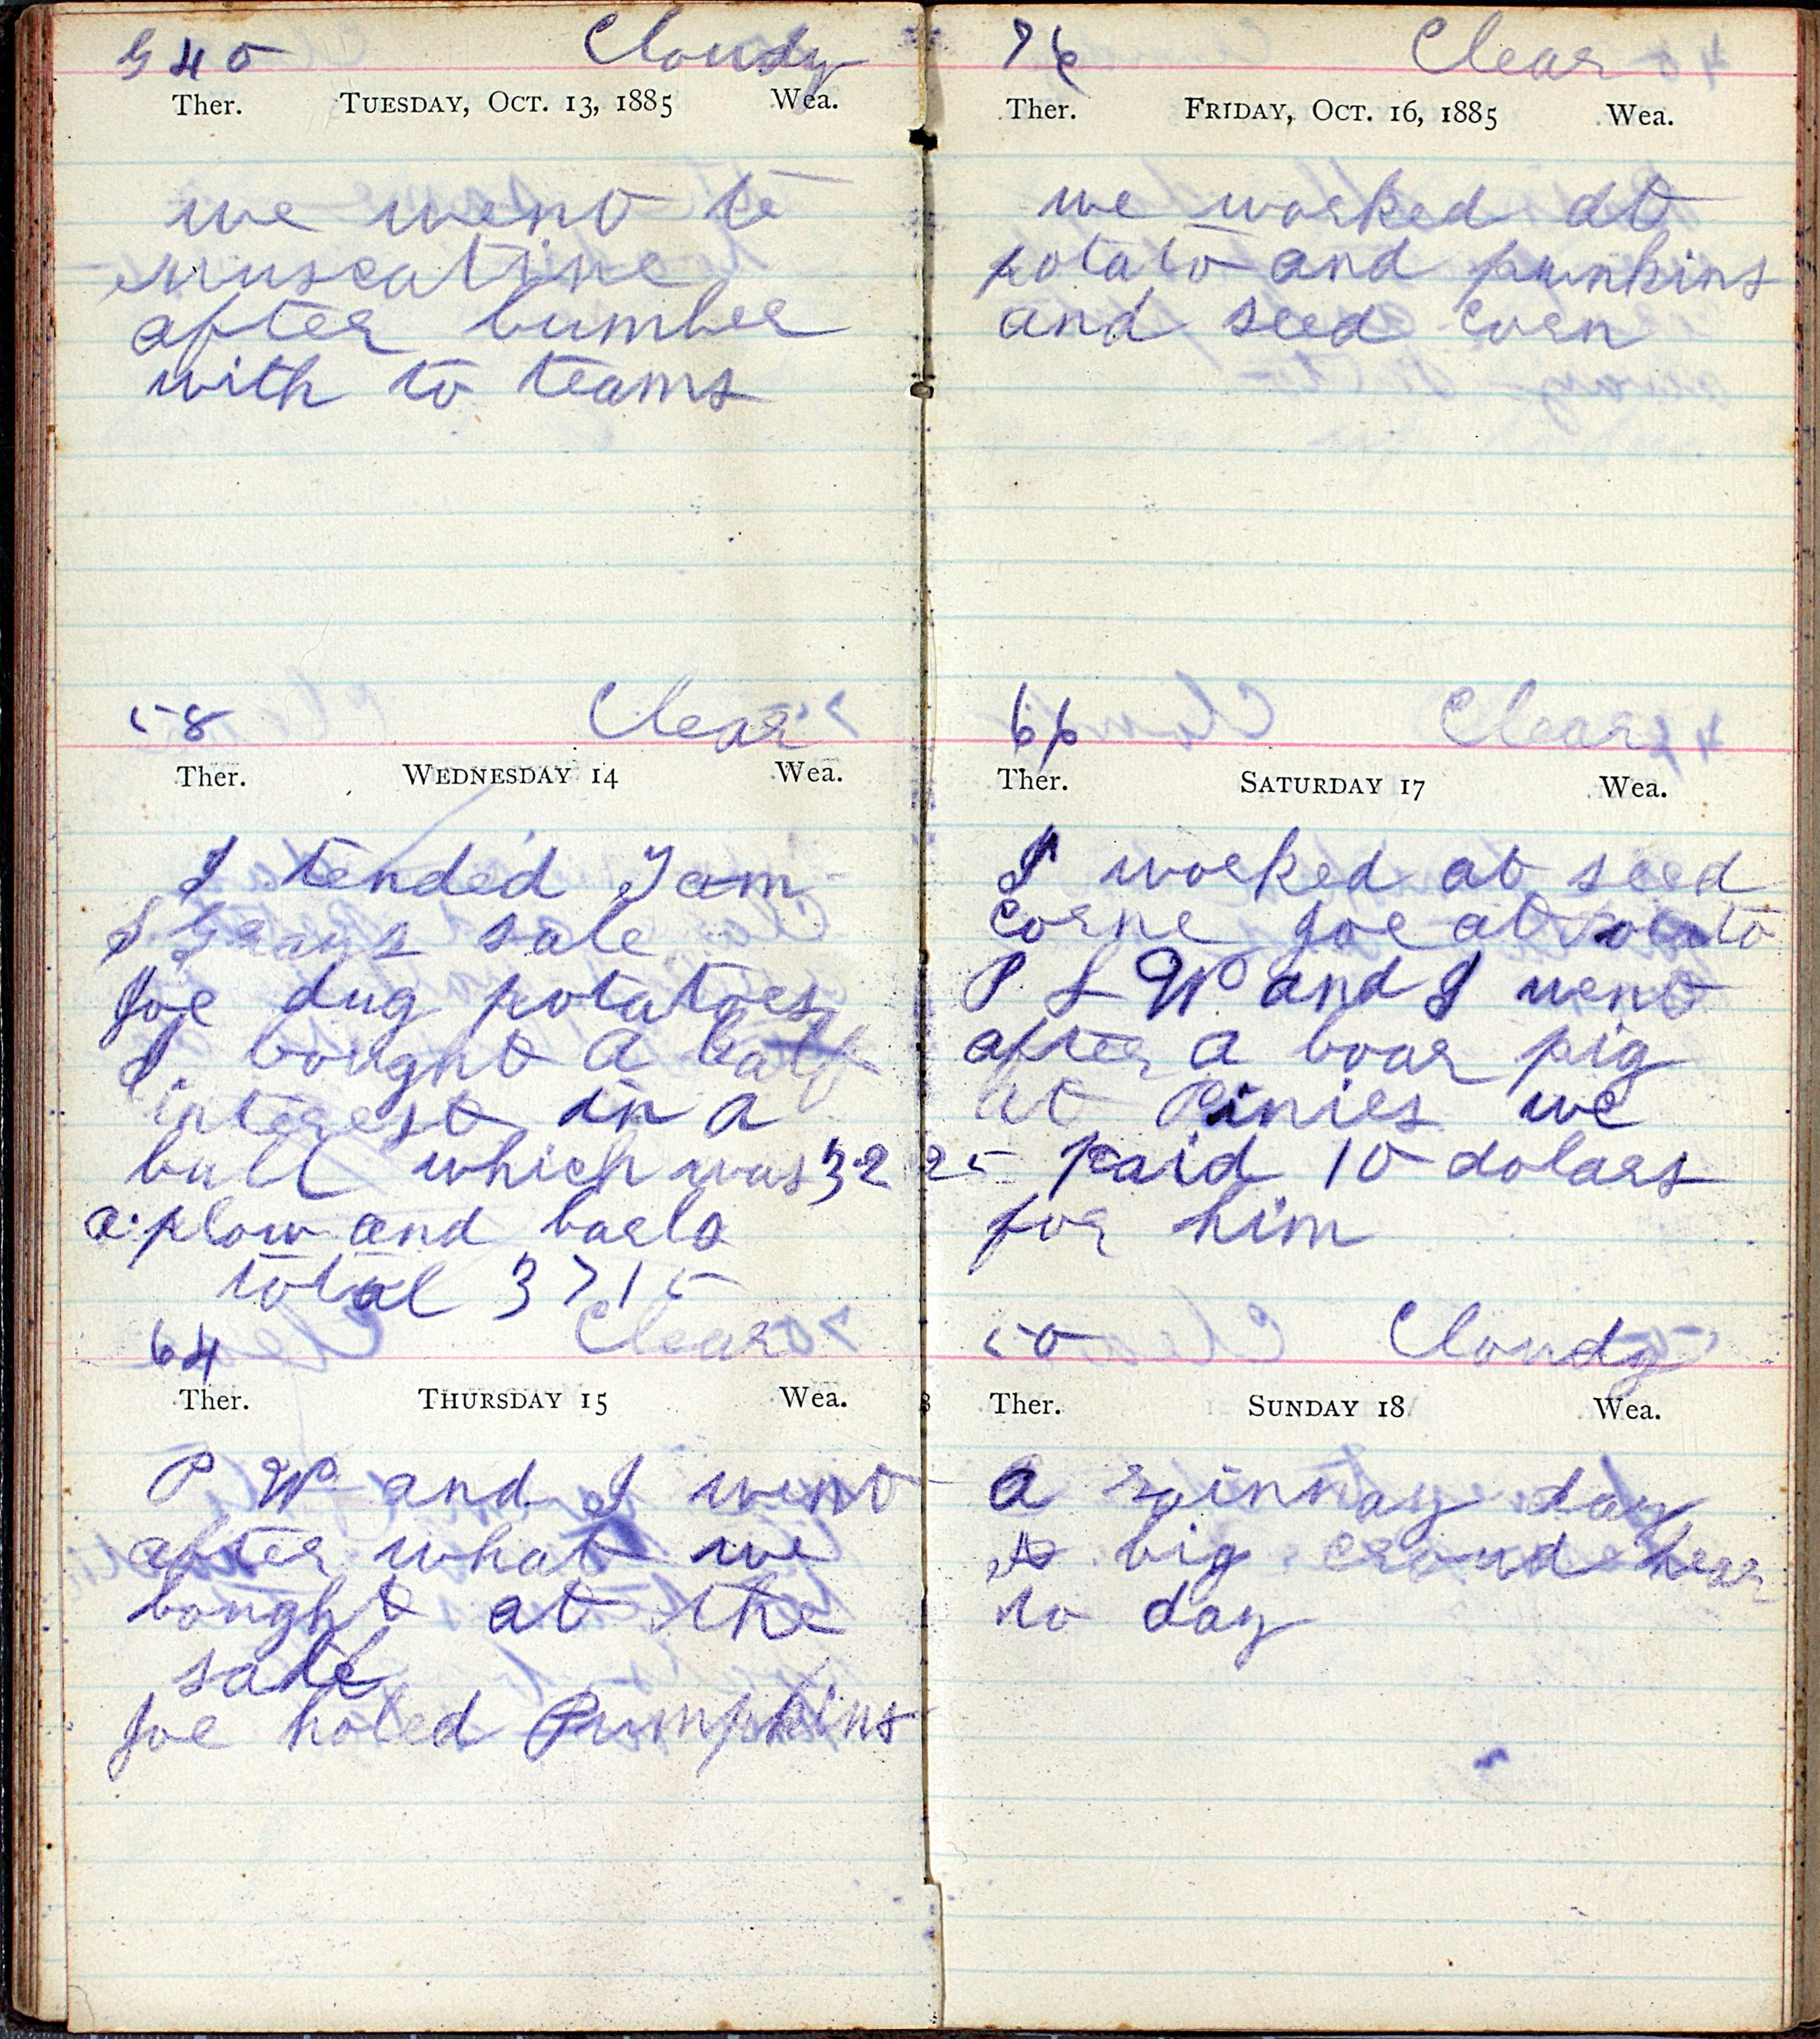 40 Cloudy
Ther. TUESDAY, OCT. 13, 1885 Wea.
we went to
muscatine
after lumber
with to teams
58 Clear
Ther. WEDNESDAY 14 Wea.
I tended Jam
Grays sale
Joe dug potatoes
I bought a half
interest in a
bull which was 32 25
a plow and
total 37 15
64 Clear
Ther. THURSDAY 15 Wea.
P W and I went
after what we
bought at the
sale
Joe holed Pumpkins
76 Clear
Ther. FRIDAY, OCT. 16, 1885 Wea.
we worked at
potato and punkins
and seed corn
66 Clear
Ther. SATURDAY 17 Wea.
I worked at seed
corne Joe at
P L W and I went
after a boar pig
at we
paid 10 dolars
for him
50 Cloudy
Ther. SUNDAY 18 Wea.
a rainnay day
a big croud hear
to day